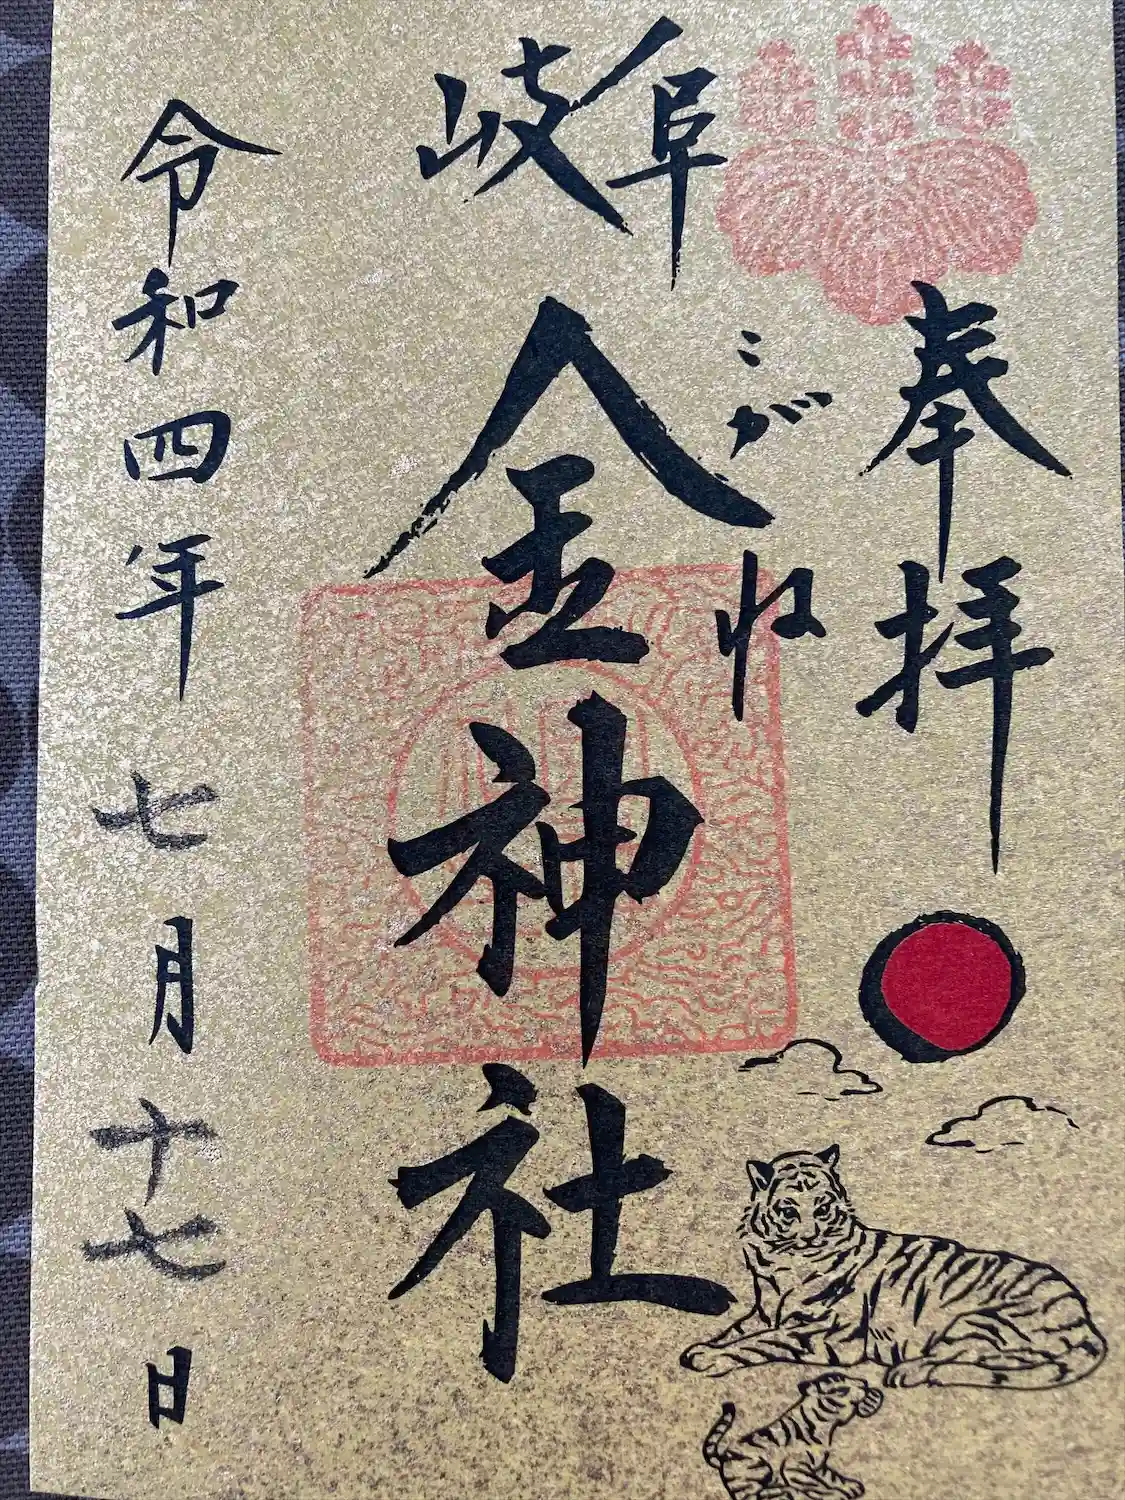 奉拝
岐阜
こがね
金神社
令和四年七月十七日